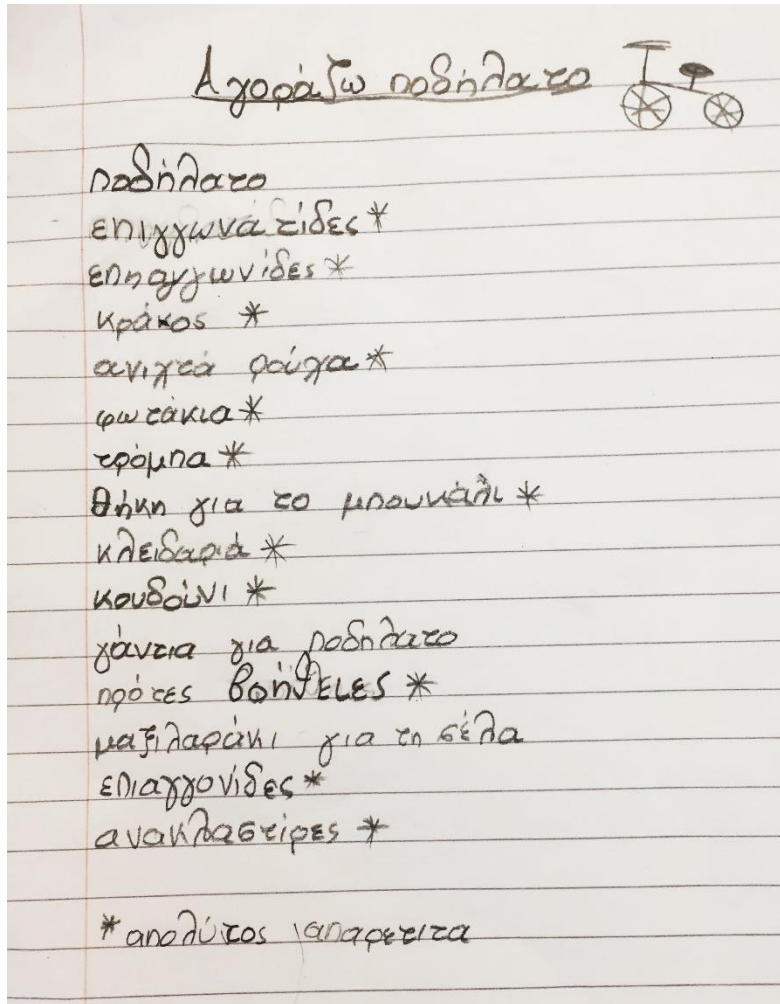 Αγοράζω ποδήλατο
ποδήλατο
επιγγωνα τίδες *
επηαγγωνίδες *
κράκος *
ανιχτά ρούχα *
φωτάκια *
τρόμπα *
θήκη για το μπουκάλι *
κλειδαριά *
κουδούνι *
γάντια για ποδηλατο
πρότες βοήθειες *
μαξιλαράκι για τη σέλα
επιαγγονίδες *
ανακλαστίρες *
* απολύτος απαρετιτα